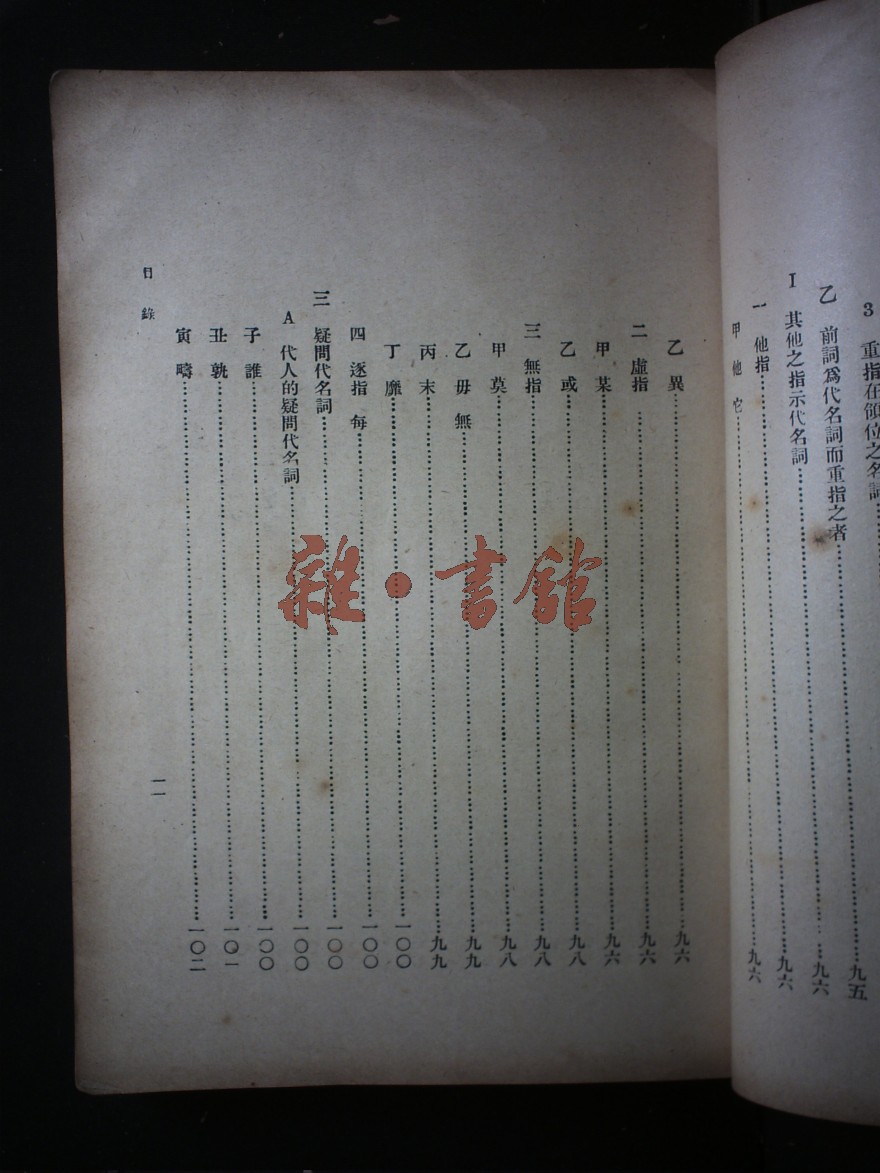 3　重指在領位之名詞……九五
乙　前詞爲代名詞而重指之者……九六
I　其他之指示代名詞……九六
一　他指……九六
甲　他　它……九六
乙　異……九六
二　虛指……九六
甲　某……九六
乙　或……九八
三　無指……九八
甲　莫……九八
乙　毋　無……九九
丙　末……九九
丁　靡……一〇〇
四　逐指　每……一〇〇
三　疑問代名詞……一〇〇
A　代人的疑問代名詞……一〇〇
子　誰……一〇〇
丑　孰……一〇一
寅　疇……一〇二
目錄
一一
雜·書館